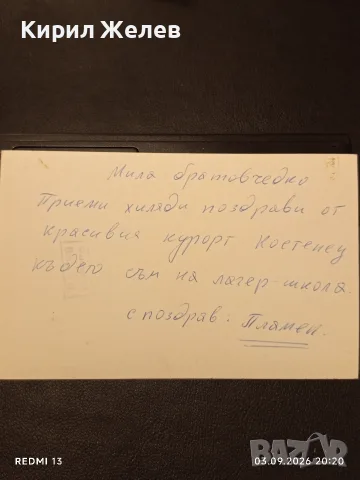 Кирил Желев
Мила братовчедко
Приеми хиляди поздрави от
красивия курорт Костенец
където съм на лагер-школа.
с поздрав: Пламен.
BAZAR
REDMI 13
03.09.2026 20:20